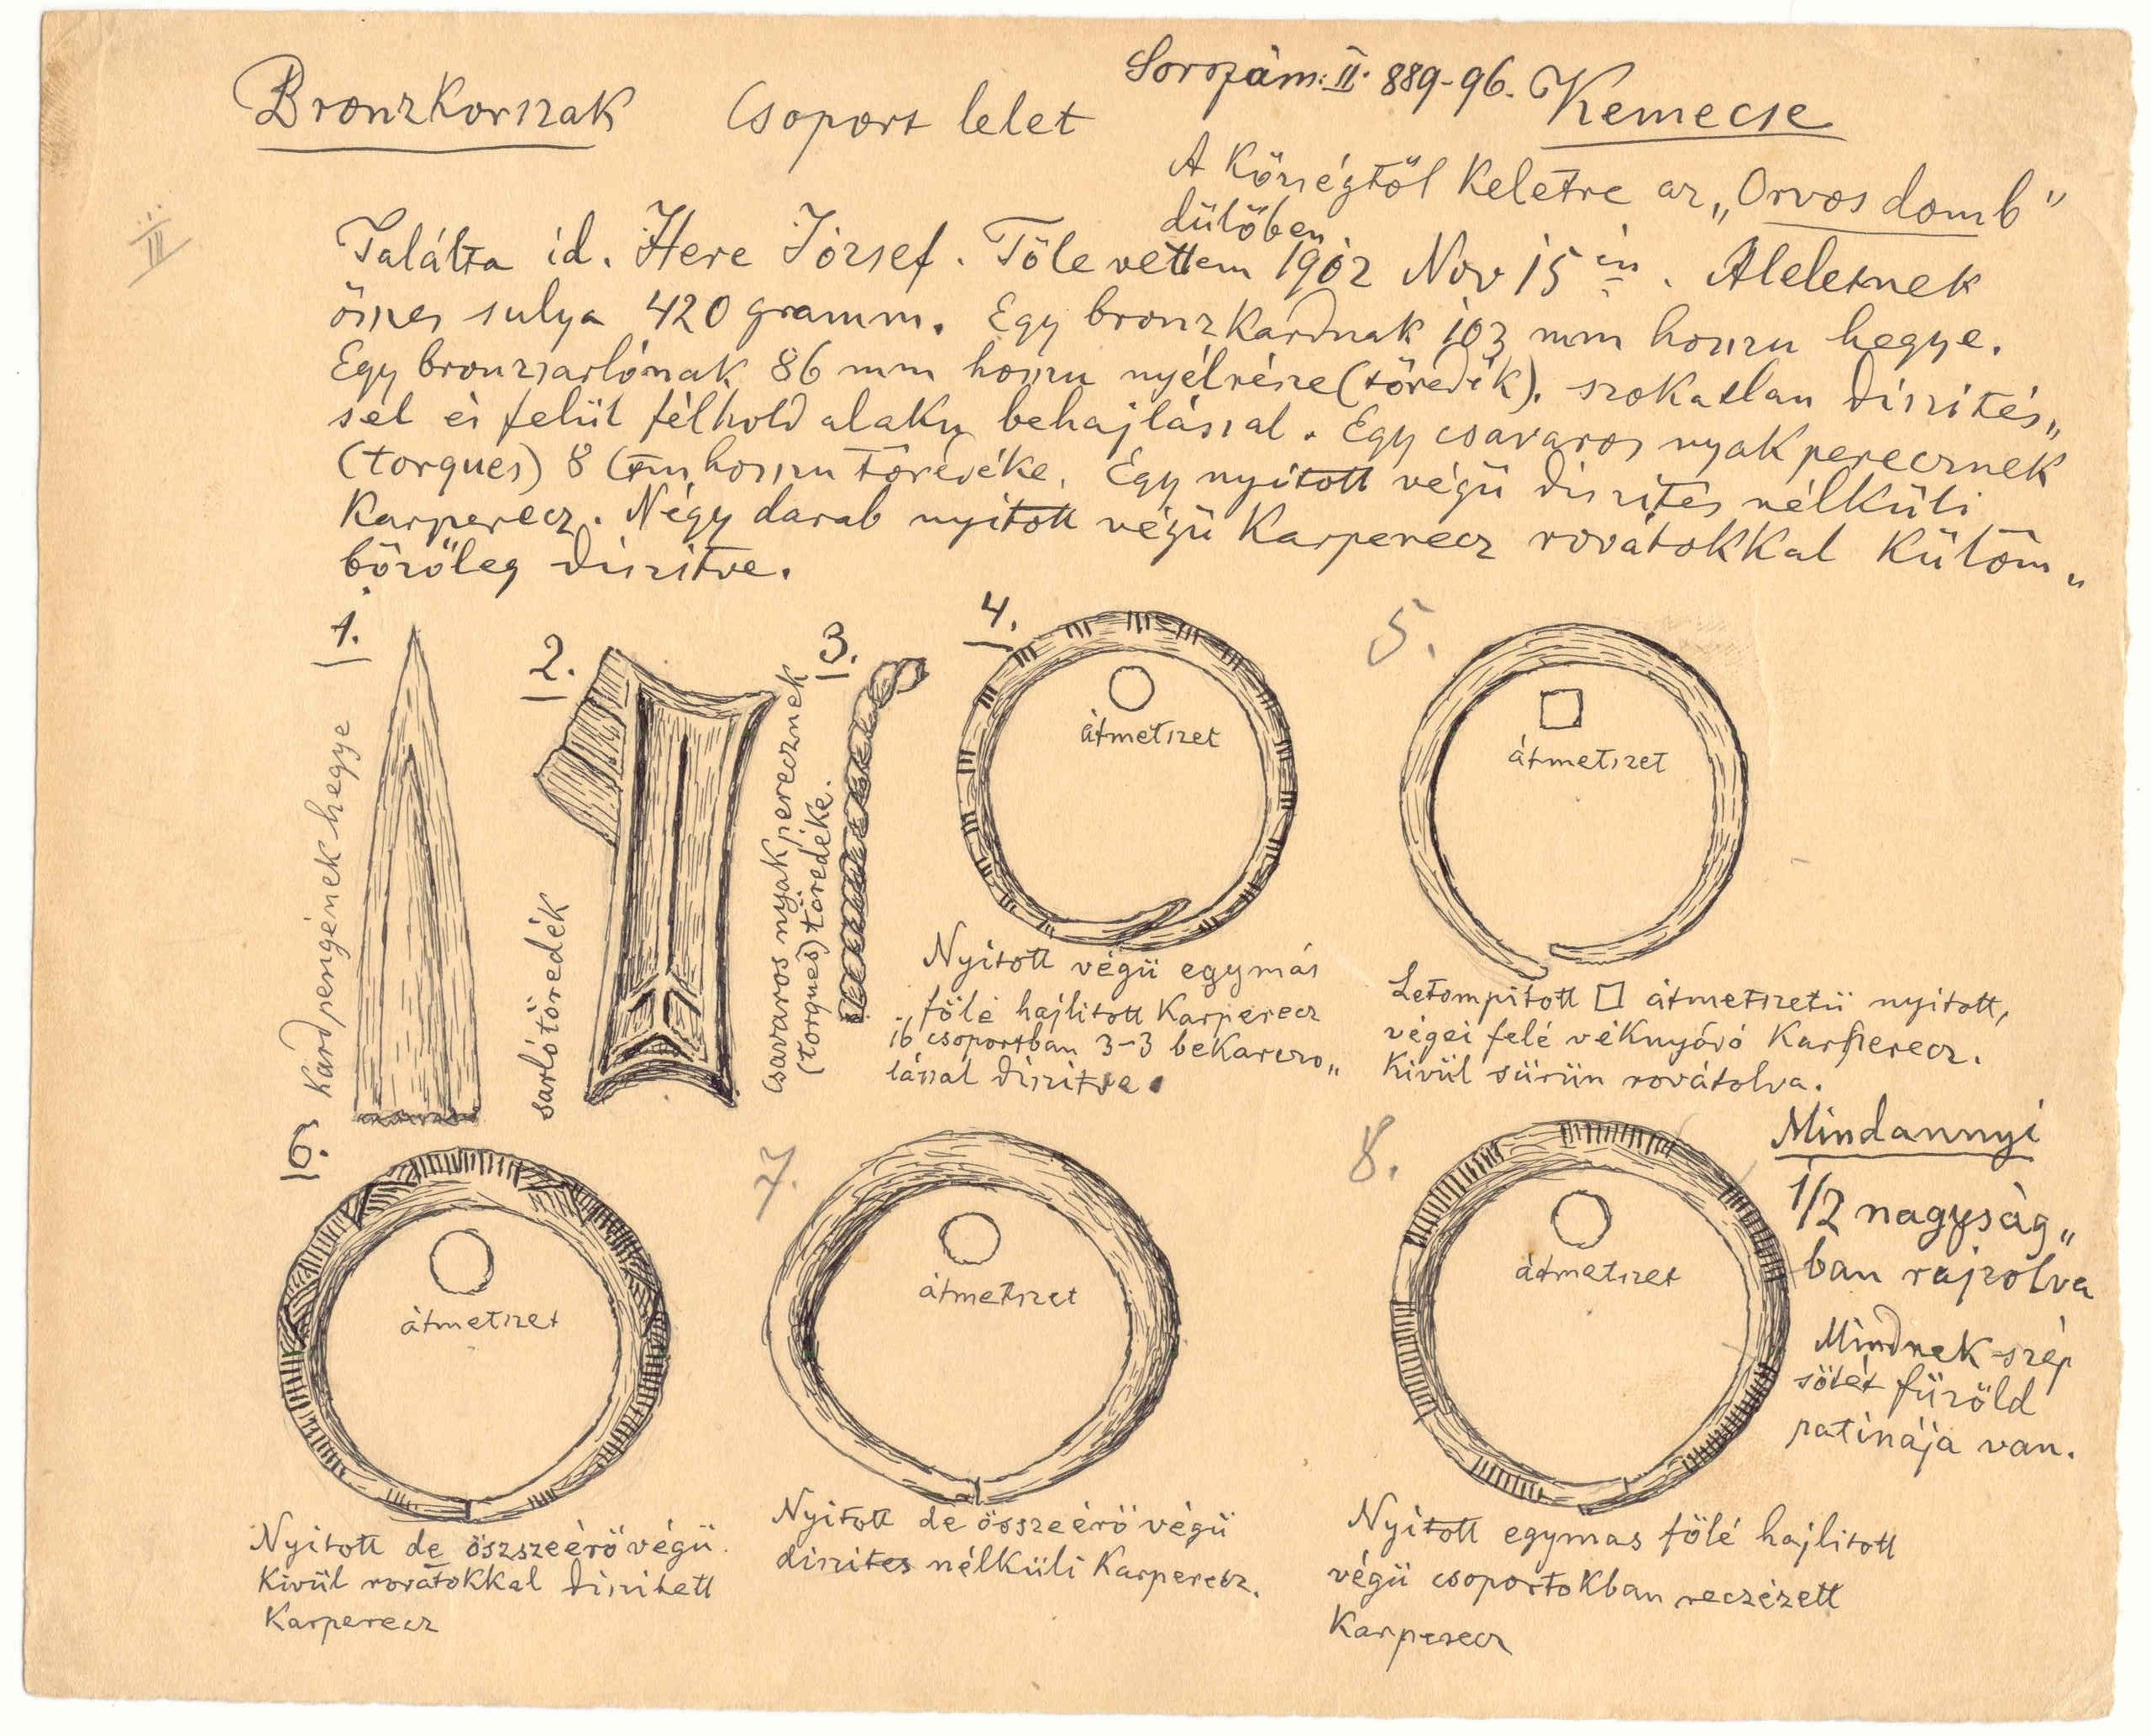 Sorozám: II. 889-96.
Bronzkorszak Csoport lelet Kemecse
A Községtöl Keletre az „Orvos domb"
dülöben.
III
Találta id. Here József. Töle vettem 1902 Nov 15 én. A leletnek
összes sulya 420 gramm. Egy bronzkardnak 103 mm hosszu hegye.
Egy bronzsarlónak 86 mm hosszu nyélrésze (töredék). szokatlan diszités„
sel és felül félhold alaku behajlással. Egy csavaros nyakperecznek
(torques) 8 cm hosszu töredéke. Egy nyitott végü diszités nélküli
Karperecz. Négy darab nyitott végü Karperecz rovátokkal külöm„
böröleg diszitve.
1.
Kardpengének hegye
2.
sarló töredék
3.
Csavaros nyakperecznek
(torques) töredéke.
4.
átmetszet
Nyitott végü egymás
fölé hajlitott Karperecz
16 csoportban 3-3 bekarczo„
lással diszitve.
5.
átmetszet
Letompitott □ átmetszetü nyitott,
végei felé véknyóró Karperecz.
Kivül sürün rovátolva.
6.
átmetszet
Nyitott de öszszeérö végü.
Kivül rovátokkal diszitett
Karperecz
7.
átmetszet
Nyitott de összeérö végü
diszites nélküli Karperecz.
8.
átmetszet
Nyitott egymas fölé hajlitott
végü csoportokban reczézett
Karperecz
Mindannyi
1/2 nagyság„
ban rajzolva
Mindnek szép
sötét füzöld
patinája van.